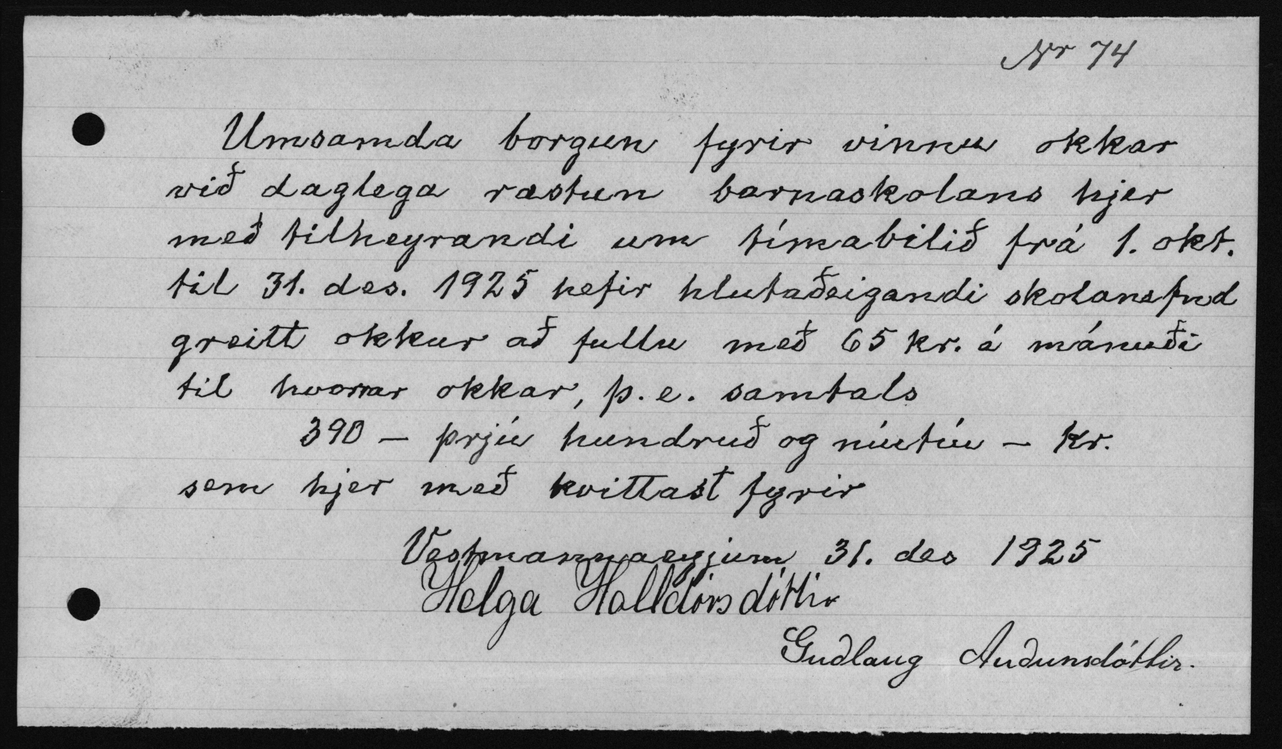 Nr 74
Umsamda borgun fyrir vinnu okkar
við daglega ræstun barnaskolans hjer
með tilheyrandi um tímabilið frá 1. okt.
til 31. des. 1925 hefir hlutaðeigandi skolanefnd
greitt okkur að fullu með 65 kr. á mánuði
til hvorrar okkar, þ. e. samtals
390 — þrjú hundruð og níutíu — kr.
sem hjer með kvittast fyrir
Vestmannaeyjum 31. des 1925
Helga Halldórsdóttir
Guðlaug Auðunsdóttir.